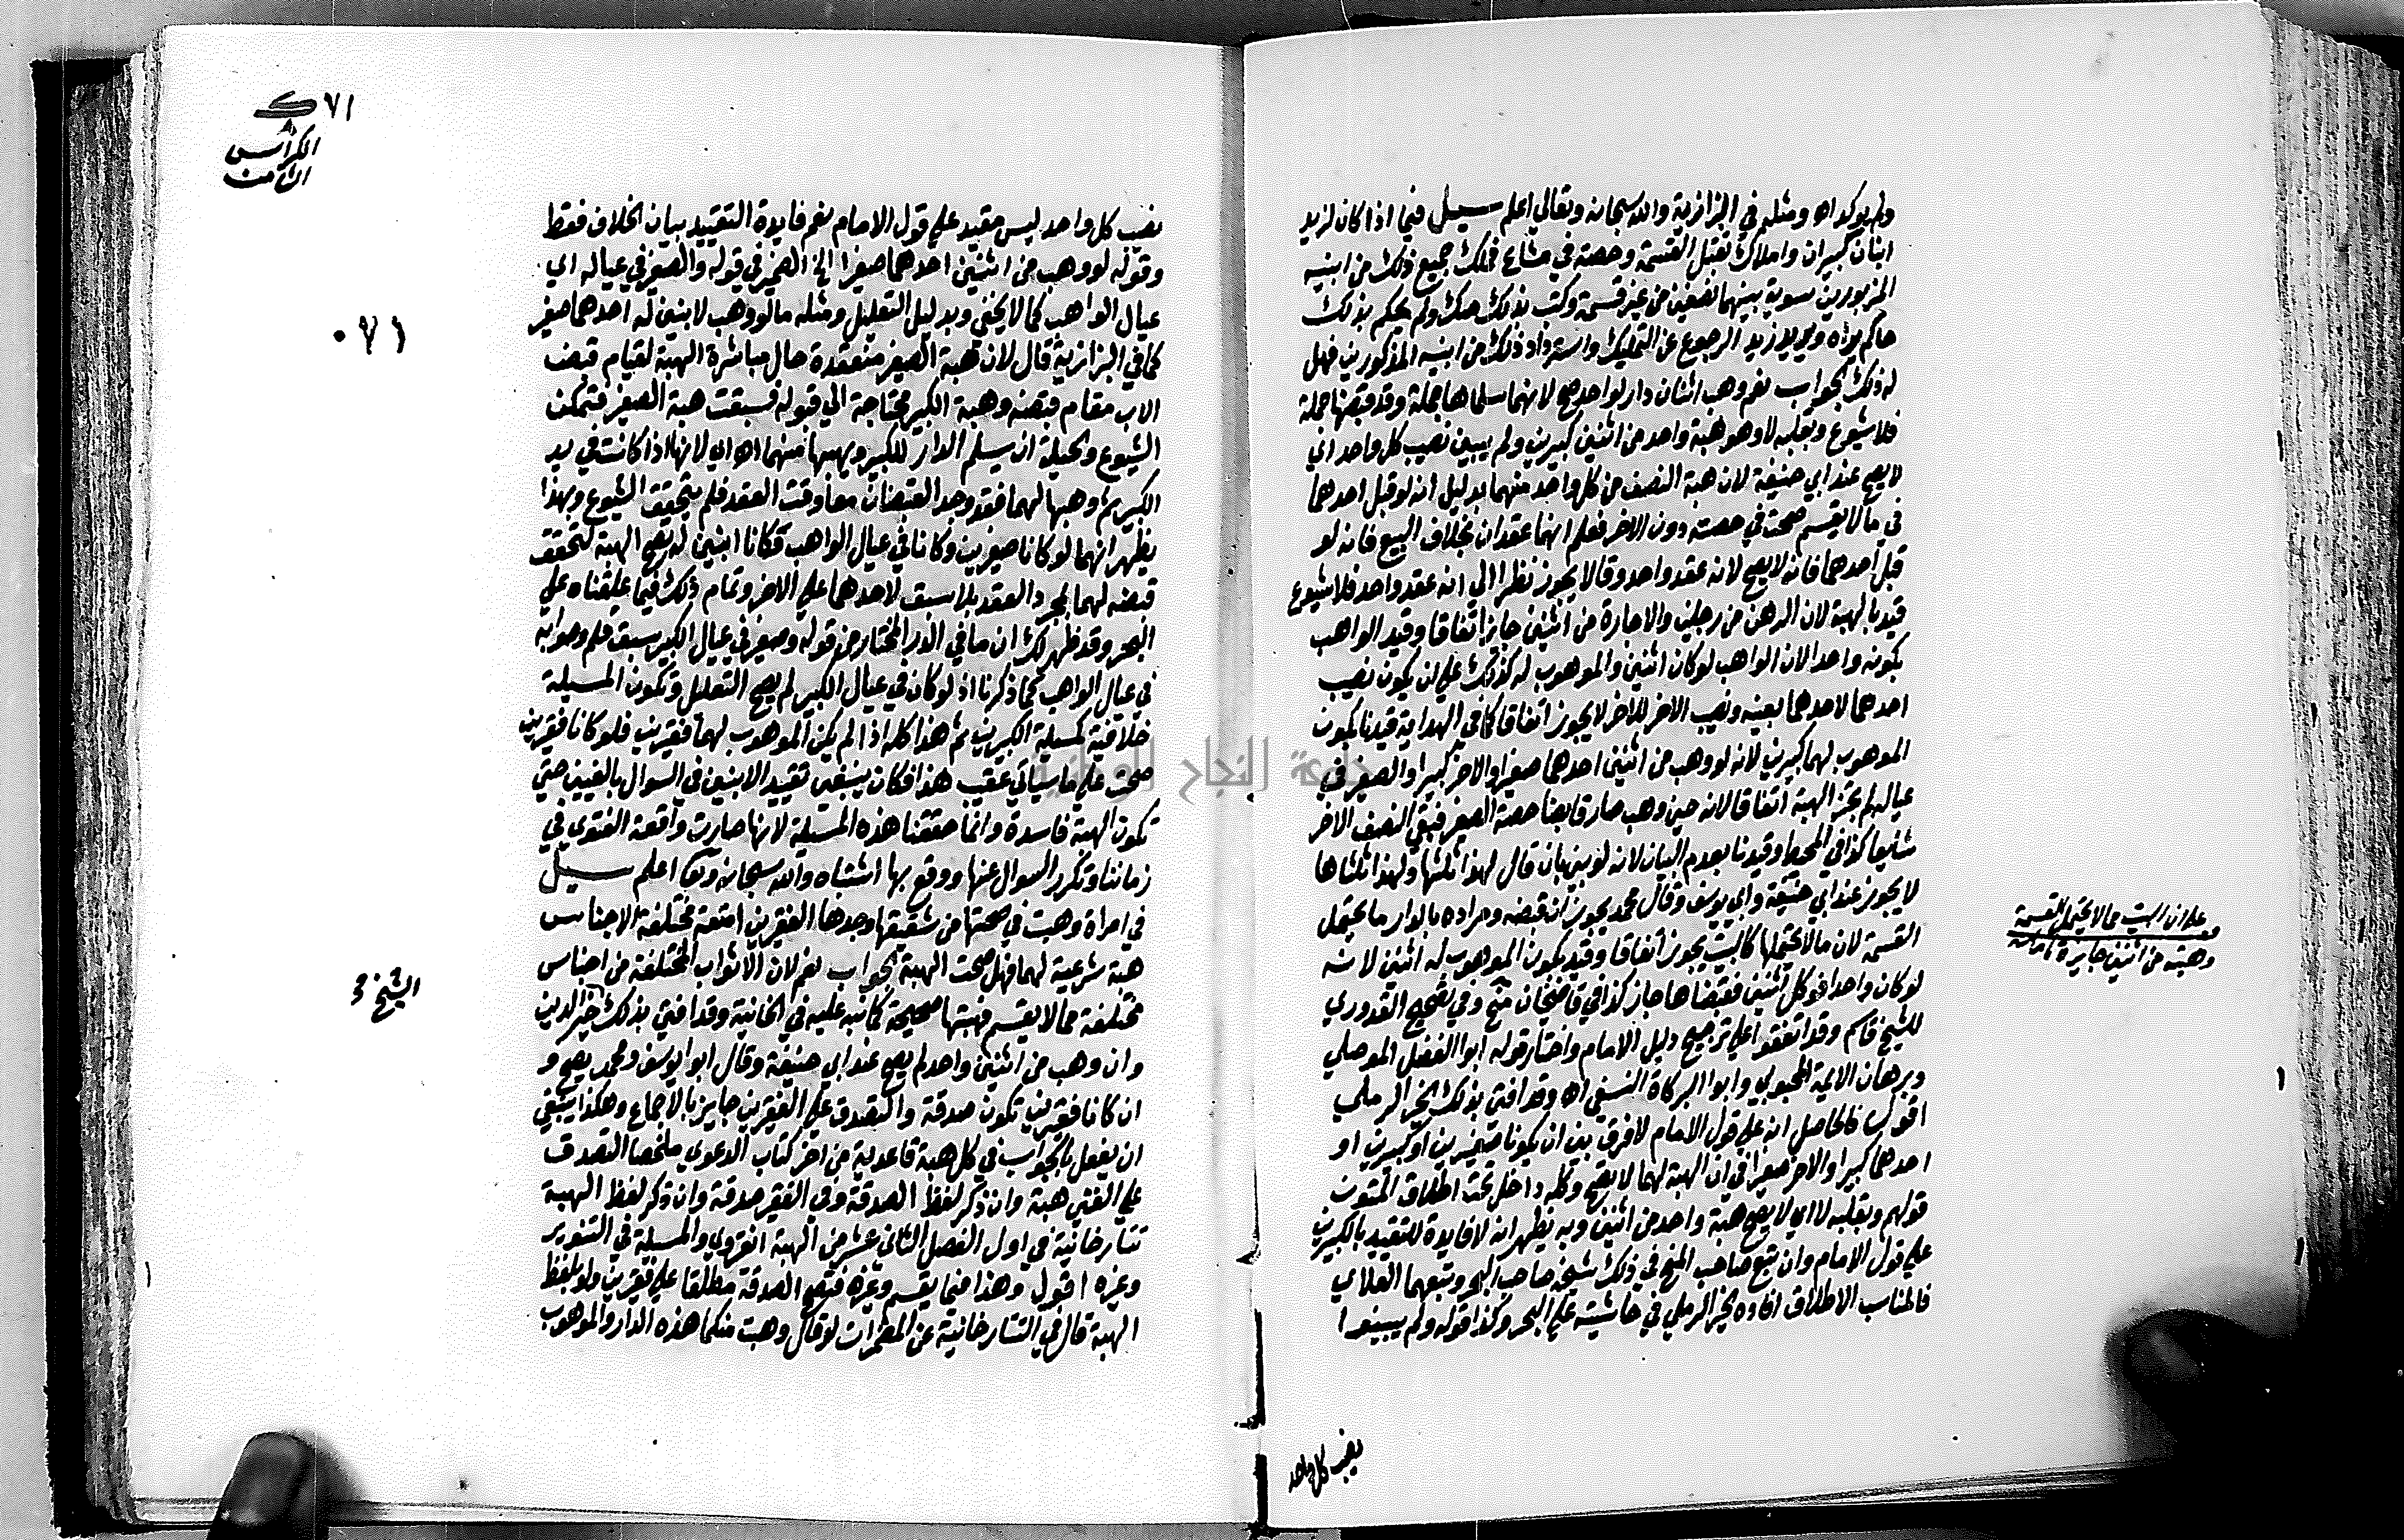 ولم يوكداه ومثله في البزازية والله سبحانه وتعالي اعلم سيل فيما اذا كان لزيد
ابنان كبيران واملاك تقبل القسمة وحصة في مشاع فملك جميع ذلك من ابنيه
المزبورين سوية بينهما نصفين من غير قسمة وكتب بذلك صك ولم يحكم بذلك
حاكم يراه ويريد زيد الرجوع عن التمليك واسترداد ذلك من ابنيه المذكورين فهل
له ذلك الجواب نعم وهب اثنان دار لواحد صح لانهما سلماها جملة وقد قبضها جملة
فلا شيوع وبقلبه لا وهو هبة واحد من اثنين كبيرين ولم يبين نصيب كل واحد اي
لا يصح عند ابي حنيفة لان هبة النصف من كل واحد منهما بدليل انه لو قبل احدهما
في ما لا يقسم صحت في حصته دون الاخر فعلم انهما عقدان بخلاف البيع فانه لو
قبل احدهما فانه لا يصح لانه عقد واحد وقالا يجوز نظرا الى انه عقد واحد فلا شيوع
قيد بالهبة لان الرهن من رجلين والاجارة من اثنين جايز اتفاقا وقيد الواهب
بكونه واحدا لان الواهب لو كان اثنين والموهوب له كذلك على ان يكون نصيب
احدهما لاحدهما بعينه ونصيب الاخر للاخر لا يجوز اتفاقا كما في الهداية قيدنا بكون
الموهوب لهما كبيرين لانه لو وهب من اثنين احدهما صغيرا والاخر كبيرا والصغير في
عياله لم يجز الهبة اتفاقا لانه حين وهب صار قابضا حصة الصغير فبقي النصف الاخر
شايعا كذا في المحيط وقيدنا بعدم البيان لانه لو بين بان قال لهذا ثلثها ولهذا ثلثاها
لا يجوز عند ابي حنيفة وابي يوسف وقال محمد يجوز ان قبضه ومراده بالدار ما يحتمل
القسمة لان ما لا يحتملها كالبيت يجوز اتفاقا وقيد بكون الموهوب له اثنين لانه
لو كان واحدا فوكل اثنين فقبضاها جاز كذا في قاضيخان منح وفي تصحيح القدوري
للشيخ قاسم وقد اتفقوا على ترجيح دليل الامام واختار قوله ابوا الفضل الموصلي
وبرهان الايمة المحبوبي وابوا البركاة النسفي اه وقد افتى بذلك الخير الرملي
اقول فالحاصل انه على قول الامام لا فرق بين ان يكونا صغيرين او كبيرين او
احدهما كبيرا والاخر صغيرا في ان الهبة لهما لا تصح وكله داخل تحت اطلاق المتون
قولهم وبقلبه لا اي لا يصح هبة واحد من اثنين وبه يظهر انه لا فايدة للتقييد بالكبيرين
على قول الامام وان تبع صاحب المنح في ذلك شيخه صاحب البحر وتبعهما العلاي
فالمناسب الاطلاق افاده الخير الرملي في حاشيته على البحر وكذا قوله ولم يبينوا
نصيب كل واحد
على ان البيت مما لا يحتمل القسمة
وهبته من اثنين جايزة
٧١ ك
الكراس
الثامن
٠٧١
نصيب كل واحد ليس مقيد على قول الامام نعم فايدة التقييد بيان الخلاف فقط
وقوله لو وهب من اثنين احدهما صغيرا الخ الضمير في قوله والصغير في عياله اي
عيال الواهب كما لا يخفى وبدليل التعليل ومثله ما لو وهب لابنين له احدهما صغير
كما في البزازية قال لان هبة الصغير منعقدة حال مباشرة الهبة لقيام قبض
الاب مقام قبضه وهبة الكبير محتاجة الي قبوله فسبقت هبة الصغير فتمكن
الشيوع والحيلة ان يسلم الدار للكبير ويهبها منهما اه اي لانها اذا كانت في يد
الكبير ثم وهبها لهما فقد وجد القبضان معا وقت العقد فلم يتحقق الشيوع وبهذا
يظهر انهما لو كانا صغيرين وكانا في عيال الواهب فكانا ابنين له تصح الهبة لتحقق
قبضه لهما بمجرد العقد بلا سبق لاحدهما على الاخر وتمام ذلك فيما علقناه علي
البحر وقد ظهر لك ان ما في الدر المختار من قوله وصغير في عيال الكبير سبق قلم وصوابه
في عيال الواهب كما ذكرنا اذ لو كان في عيال الكبير لم يصح التعليل وتكون المسيلة
خلافية كمسيلة الكبيرين ثم هذا كله اذا لم يكن الموهوب لهما فقيرين فلو كانا فقيرين
صحت على ما سياتي عقب هذا فكان ينبغي تقييد الابنين في السوال بالغنيين حتي
تكون الهبة فاسدة وانما حققنا هذه المسيلة لانها صارت واقعة الفتوى في
زماننا وتكرر السوال عنها ووقع بها اشتباه والله سبحانه وتعالى اعلم سيل
في امراة وهبت في صحتها من شقيقها وجدها الفقيرين امتعة مختلفة الاجناس
هبة شرعية لهما فهل صحت الهبة الجواب نعم لان الاثواب المختلفة من اجناس
مختلفة مما لا يقسم فهبتها صحيحة كما نبه عليه في الخانية وقد افتى بذلك خير الدين
الشيخ
وان وهب من اثنين واحد لم يصح عند ابي حنيفة وقال ابو يوسف ومحمد يصح و
ان كانا فقيرين تكون صدقة والتصدق على الفقيرين جايز بالاجماع وهكذا ينبغي
ان يفعل بالجواب في كل هبة قاعدية من اخر كتاب الدعوى ملخصا التصدق
على الغني هبة وان ذكر لفظ الصدقة وفى الفقير صدقة وان ذكر لفظ الهبة
تتارخانية في اول الفصل الثاني عشر من الهبة انقروي والمسيلة في التنوير
وغيره اقول وهذا فيما يقسم وغيره فتصح الصدقة مطلقا على فقيرين ولو بلفظ
الهبة قال في التتارخانية عن المضمرات لو قال وهبت منكما هذه الدار والموهوب
جامعة النجاح الوطنية